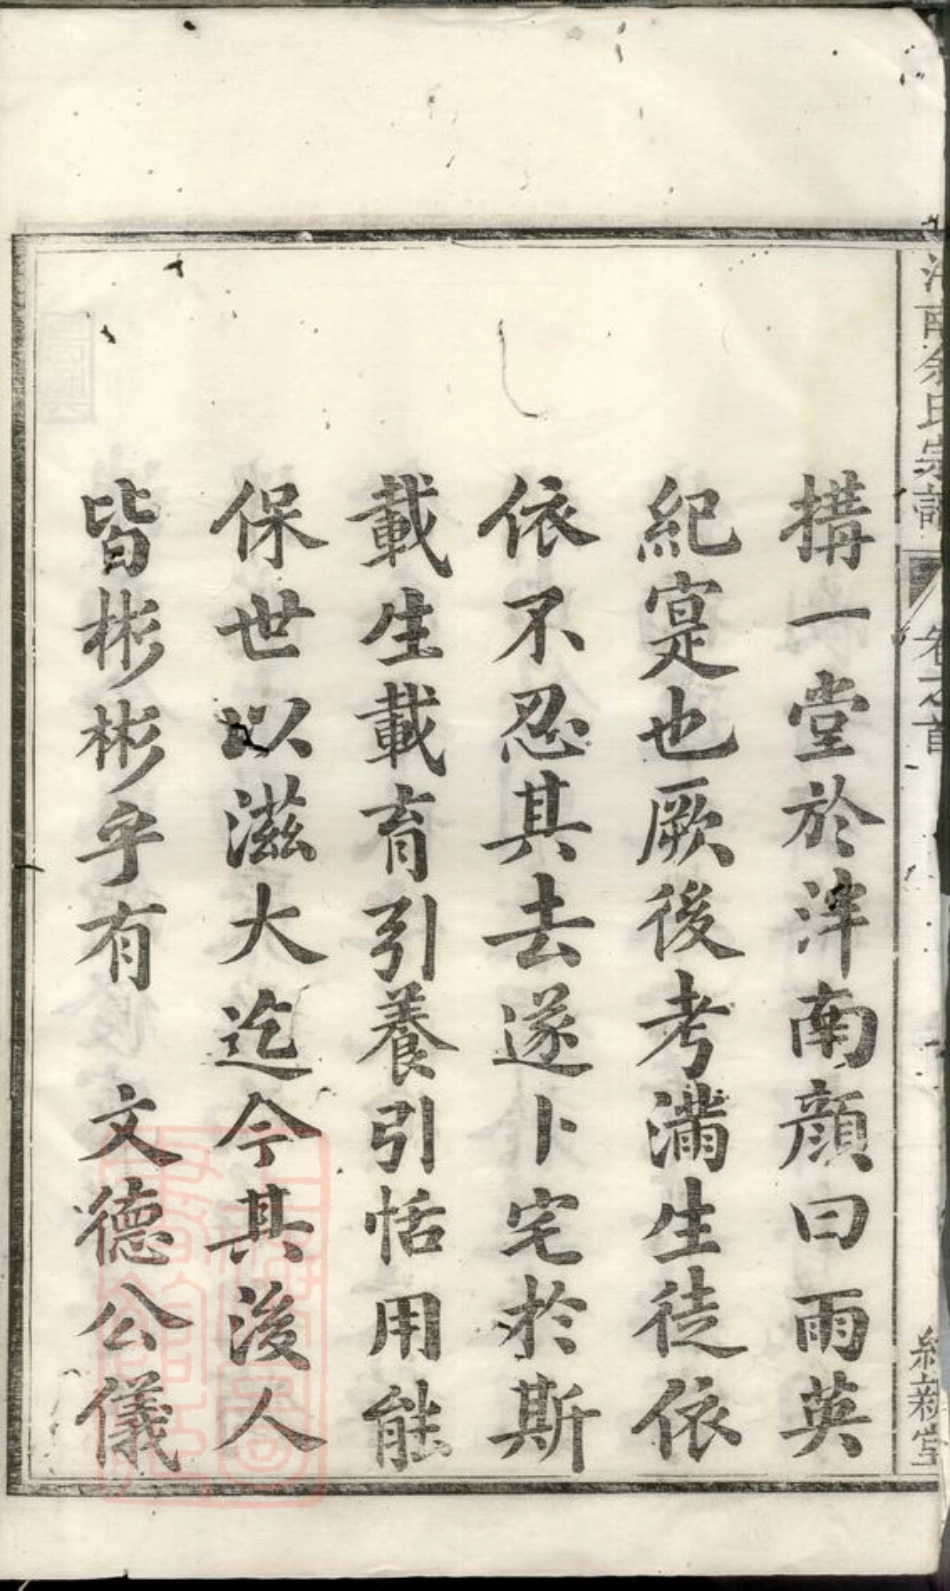 南余氏宗譜 卷之首 紹新堂
搆一堂於泮南顔曰雨英
紀寔也厥後考滿生徒依
依不忍其去遂卜宅於斯
載生載育引養引恬用能
保世以滋大迄今其後人
皆彬彬乎有 文德公儀